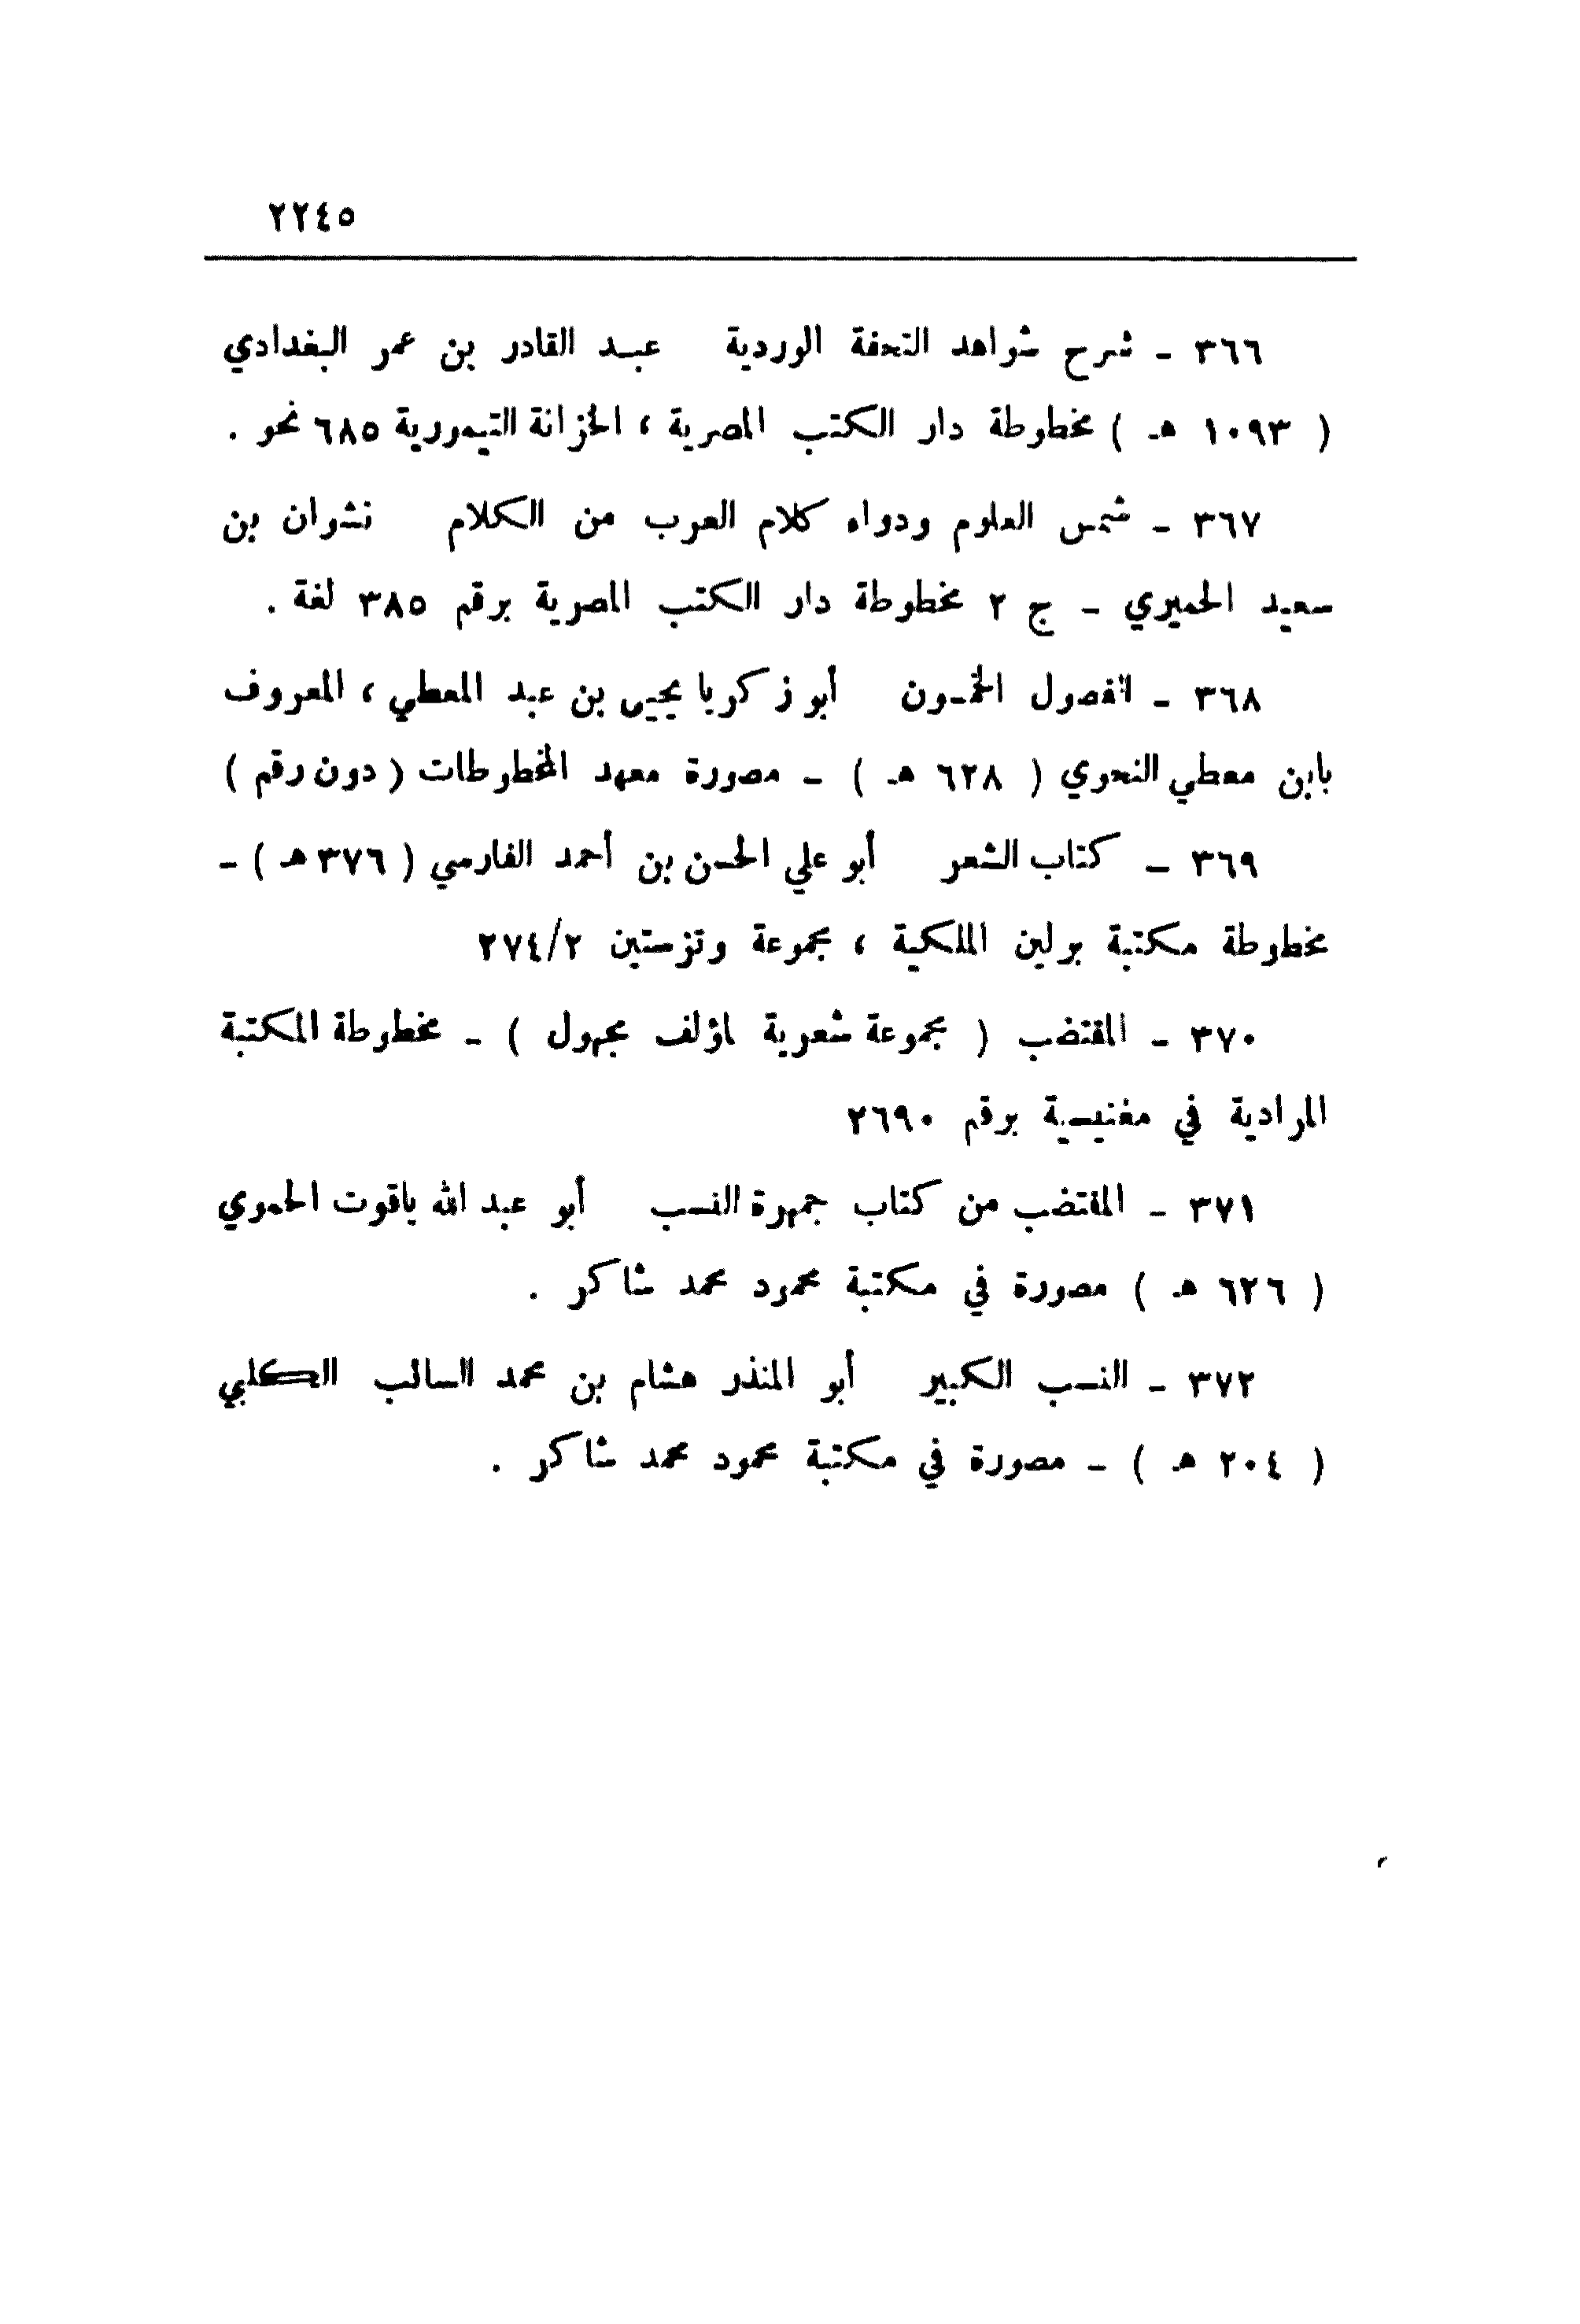 ٢٢٤٥
٣٦٦ - شرح شواهد التحفة الوردية عبد القادر بن عمر البغدادي
( ١٠٩٣ هـ ) مخطوطة دار الكتب المصرية ، الخزانة التيمورية ٦٨٥ نحو .
٣٦٧ - شمس العلوم ودواء كلام العرب من الكلام نشوان بن
سعيد الحميري - ج ٢ مخطوطة دار الكتب المصرية برقم ٣٨٥ لغة .
٣٦٨ - الفصول الخمسون أبو زكريا يحيى بن عبد المعطي ، المعروف
بابن معطي النحوي ( ٦٢٨ هـ ) - مصورة معهد المخطوطات ( دون رقم )
٣٦٩ - كتاب الشعر أبو علي الحسن بن أحمد الفارسي ( ٣٧٦ هـ ) -
مخطوطة مكتبة برلين الملكية ، مجموعة وتزستين ٢٧٤/٢
٣٧٠ - المقتضب ( مجموعة شعرية لمؤلف مجهول ) - مخطوطة المكتبة
المرادية في مغنيسية برقم ٢٦٩٠
٣٧١ - المقتضب من كتاب جمهرة النسب أبو عبد الله ياقوت الحموي
( ٦٢٦ هـ ) مصورة في مكتبة محمود محمد شاكر .
٣٧٢ - النسب الكبير أبو المنذر هشام بن محمد السائب الكلبي
( ٢٠٤ هـ ) - مصورة في مكتبة محمود محمد شاكر .